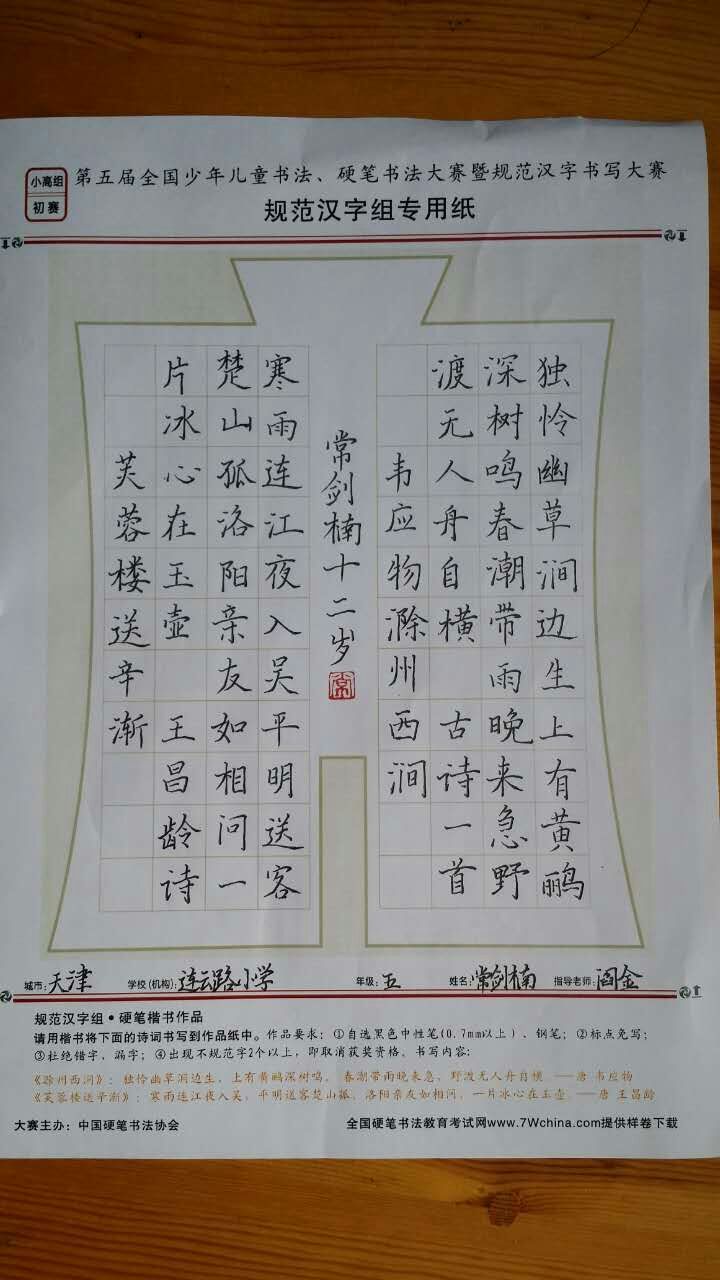 小高组
初赛
第五届全国少年儿童书法、硬笔书法大赛暨规范汉字书写大赛
规范汉字组专用纸
独怜幽草涧边生上有黄鹂
深树鸣春潮带雨晚来急野
渡无人舟自横 古诗一首
韦应物滁州西涧
常剑楠十二岁
常
寒雨连江夜入吴平明送客
楚山孤洛阳亲友如相问一
片冰心在玉壶 王昌龄诗
芙蓉楼送辛渐
城市：天津 学校(机构)：连云路小学 年级：五 姓名：常剑楠 指导老师：阎金
规范汉字组·硬笔楷书作品
请用楷书将下面的诗词书写到作品纸中。作品要求：①自选黑色中性笔(0.7mm以上)、钢笔；②标点免写；
③杜绝错字，漏字；④出现不规范字2个以上，即取消获奖资格。书写内容：
《滁州西涧》：独怜幽草涧边生，上有黄鹂深树鸣。 春潮带雨晚来急，野渡无人舟自横。——唐 韦应物
《芙蓉楼送辛渐》：寒雨连江夜入吴，平明送客楚山孤。洛阳亲友如相问，一片冰心在玉壶。——唐 王昌龄
大赛主办：中国硬笔书法协会 全国硬笔书法教育考试网www.7Wchina.com提供样卷下载